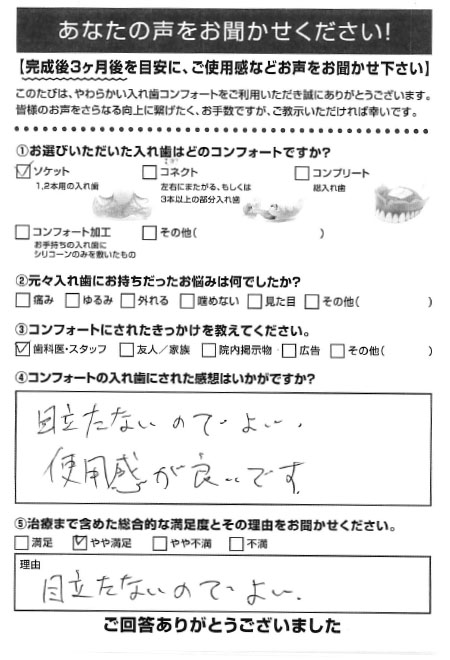 あなたの声をお聞かせください!
【完成後3ヶ月後を目安に、ご使用感などお声をお聞かせ下さい】
このたびは、やわらかい入れ歯コンフォートをご利用いただき誠にありがとうございます。
皆様のお声をさらなる向上に繋げたく、お手数ですが、ご教示いただければ幸いです。
①お選びいただいた入れ歯はどのコンフォートですか?
☑ソケット □コネクト □コンプリート
1,2本用の入れ歯 左右にまたがる、もしくは 総入れ歯
3本以上の部分入れ歯
□コンフォート加工 □その他( )
お手持ちの入れ歯に
シリコーンのみを敷いたもの
②元々入れ歯にお持ちだったお悩みは何でしたか?
□痛み □ゆるみ □外れる □噛めない □見た目 □その他( )
③コンフォートにされたきっかけを教えてください。
☑歯科医・スタッフ □友人/家族 □院内掲示物 □広告 □その他( )
④コンフォートの入れ歯にされた感想はいかがですか?
目立たないのでよい.
使用感が良いです
⑤治療まで含めた総合的な満足度とその理由をお聞かせください。
□満足 ☑やや満足 □やや不満 □不満
理由
目立たないのでよい.
ご回答ありがとうございました